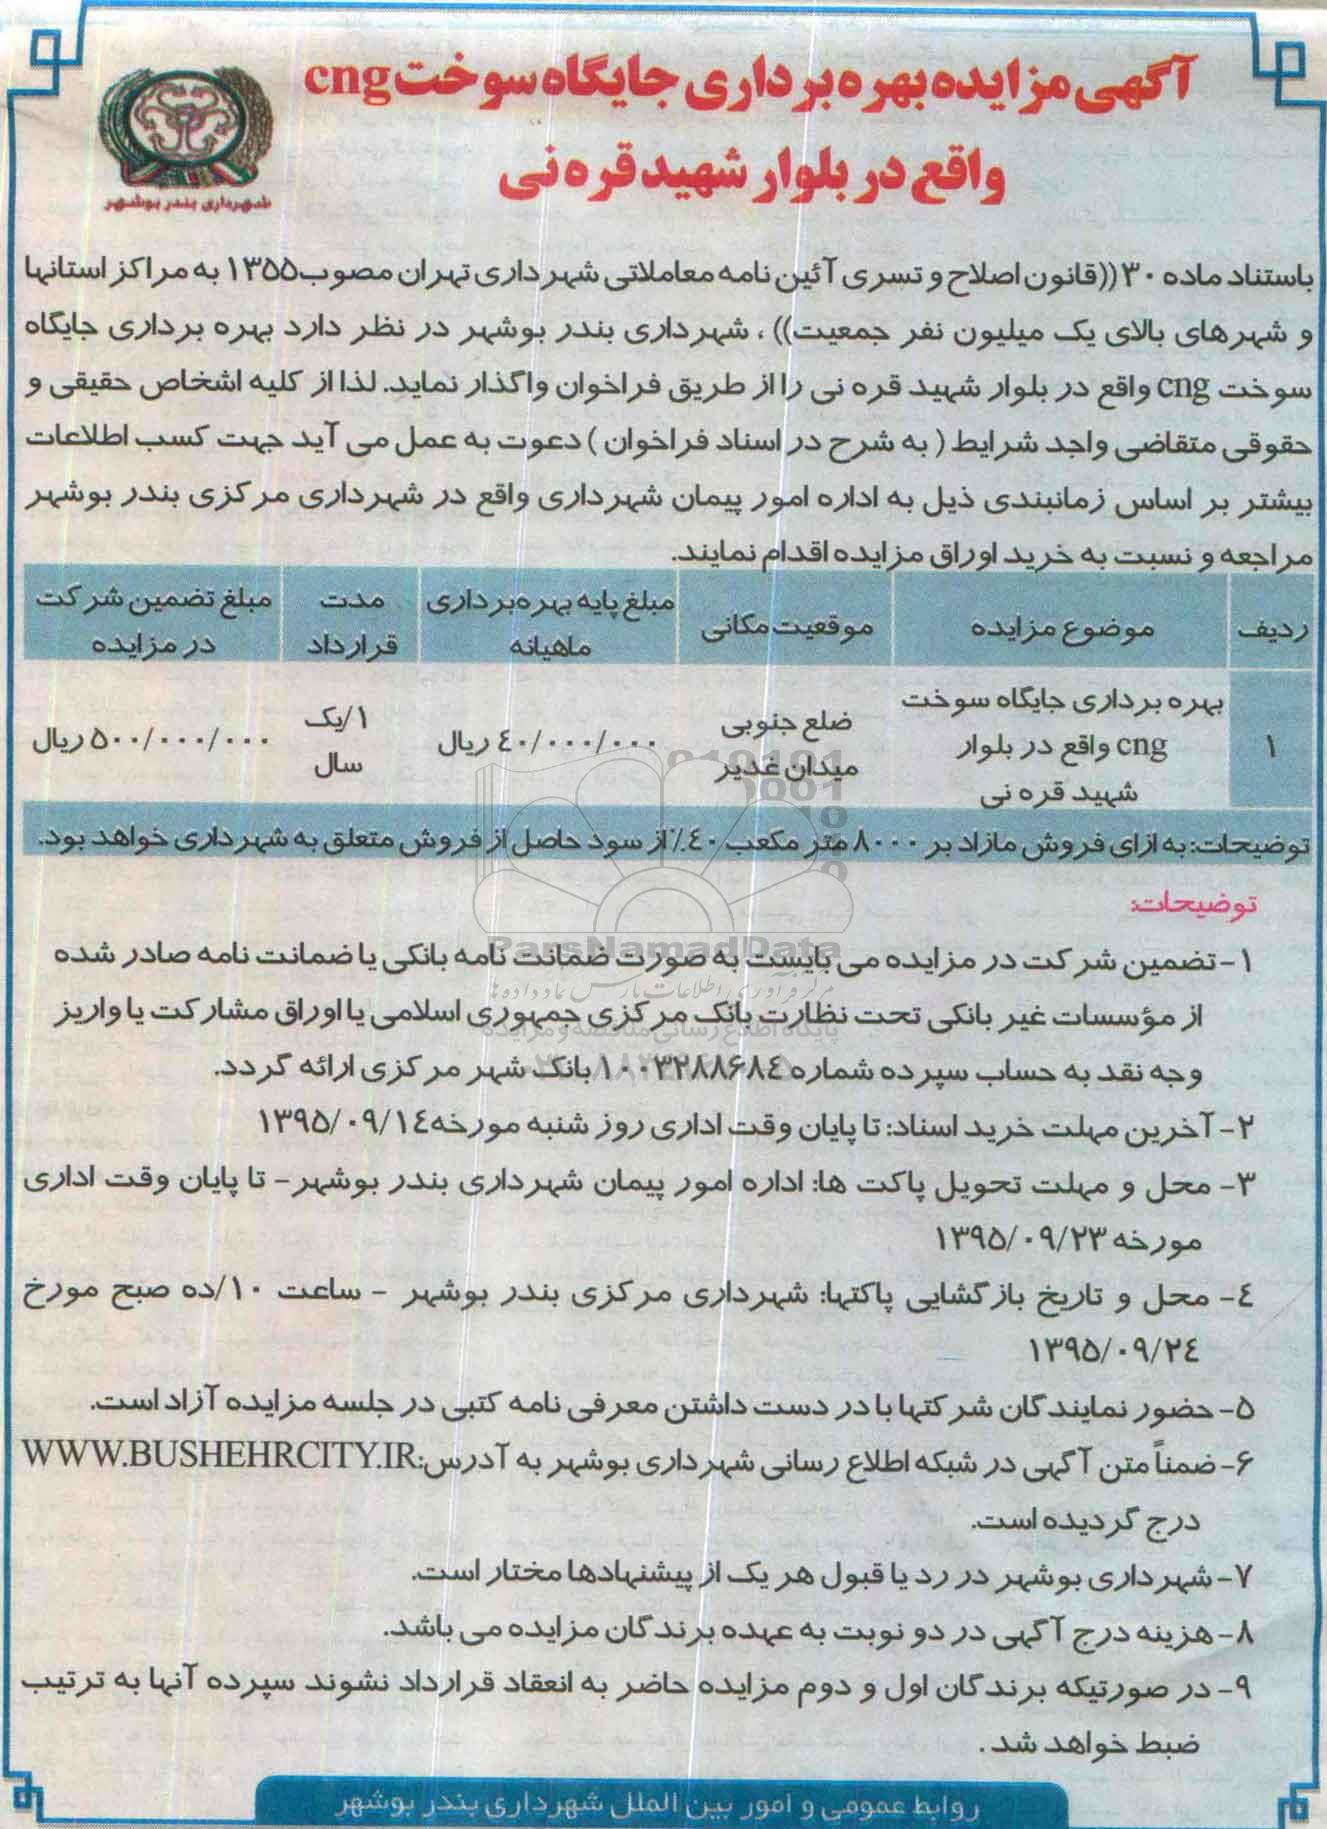 آگهی مزایده بهره برداری جایگاه سوخت cng
واقع در بلوار شهید قره نی
شهرداری بندر بوشهر
باستناد ماده ۳۰ ((قانون اصلاح و تسری آئین نامه معاملاتی شهرداری تهران مصوب۱۳۵۵ به مراکز استانها
و شهرهای بالای یک میلیون نفر جمعیت))، شهرداری بندر بوشهر در نظر دارد بهره برداری جایگاه
سوخت cng واقع در بلوار شهید قره نی را از طریق فراخوان واگذار نماید. لذا از کلیه اشخاص حقیقی و
حقوقی متقاضی واجد شرایط ( به شرح در اسناد فراخوان ) دعوت به عمل می آید جهت کسب اطلاعات
بیشتر بر اساس زمانبندی ذیل به اداره امور پیمان شهرداری واقع در شهرداری مرکزی بندر بوشهر
مراجعه و نسبت به خرید اوراق مزایده اقدام نمایند.
ردیف
موضوع مزایده
موقعیت مکانی
مبلغ پایه بهره‌برداری
ماهیانه
مدت
قرارداد
مبلغ تضمین شرکت
در مزایده
۱
بهره برداری جایگاه سوخت
cng واقع در بلوار
شهید قره نی
ضلع جنوبی
میدان غدیر
۴۰/۰۰۰/۰۰۰ ریال
۱/یک
سال
۵۰۰/۰۰۰/۰۰۰ ریال
توضیحات: به ازای فروش مازاد بر ۸۰۰۰ متر مکعب ۴۰٪ از سود حاصل از فروش متعلق به شهرداری خواهد بود.
توضیحات:
۱-تضمین شرکت در مزایده می بایست به صورت ضمانت نامه بانکی یا ضمانت نامه صادر شده
از مؤسسات غیر بانکی تحت نظارت بانک مرکزی جمهوری اسلامی یا اوراق مشارکت یا واریز
وجه نقد به حساب سپرده شماره ۱۰۰۳۲۸۸۶۸۴ بانک شهر مرکزی ارائه گردد.
۲-آخرین مهلت خرید اسناد: تا پایان وقت اداری روز شنبه مورخه۱۳۹۵/۰۹/۱۴
۳- محل و مهلت تحویل پاکت ها: اداره امور پیمان شهرداری بندر بوشهر- تا پایان وقت اداری
مورخه ۱۳۹۵/۰۹/۲۳
۴- محل و تاریخ بازگشایی پاکتها: شهرداری مرکزی بندر بوشهر - ساعت ۱۰/ده صبح مورخ
۱۳۹۵/۰۹/۲۴
۵-حضور نمایندگان شرکتها با در دست داشتن معرفی نامه کتبی در جلسه مزایده آزاد است.
۶-ضمناً متن آگهی در شبکه اطلاع رسانی شهرداری بوشهر به آدرس:WWW.BUSHEHRCITY.IR
درج گردیده است.
۷-شهرداری بوشهر در رد یا قبول هر یک از پیشنهادها مختار است.
۸-هزینه درج آگهی در دو نوبت به عهده برندگان مزایده می باشد.
۹-در صورتیکه برندگان اول و دوم مزایده حاضر به انعقاد قرارداد نشوند سپرده آنها به ترتیب
ضبط خواهد شد .
روابط عمومی و امور بین الملل شهرداری بندر بوشهر
ParsNamadData
پایگاه اطلاع رسانی مناقصه و مزایده